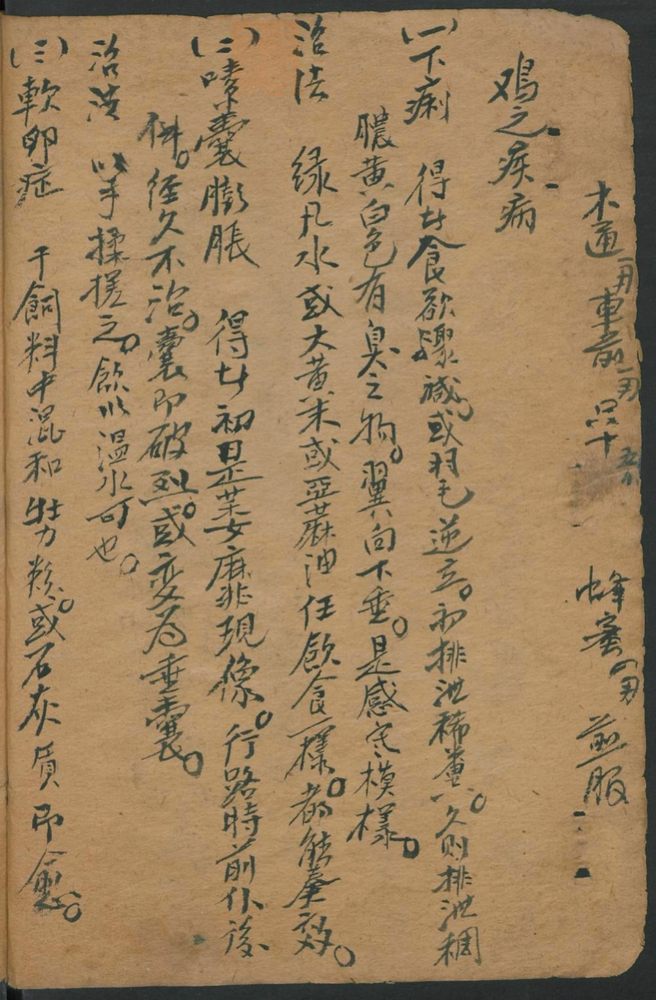 木通一用 車前一用 只十 蜂蜜一用 煎服
鸡之疾病
(一)下痢 得廿食欲驟減。或羽毛逆立。初排泄稀糞。久則排泄稠
膿黄白色有臭之物。翼向下垂。是感寒模樣。
治法 绿凡水或大黄末或亞蔴油任飲食一樣。都能奏效。
(二)嗉囊膨脹 得廿初呈萎靡現像。行路時前仆後
仰。径久不治。囊即破烈。或变為垂囊。
治法 以手揉搓之。飲以温水可也。
(三)軟卵症 于飼料中混和牡力粉。或石灰質即愈。